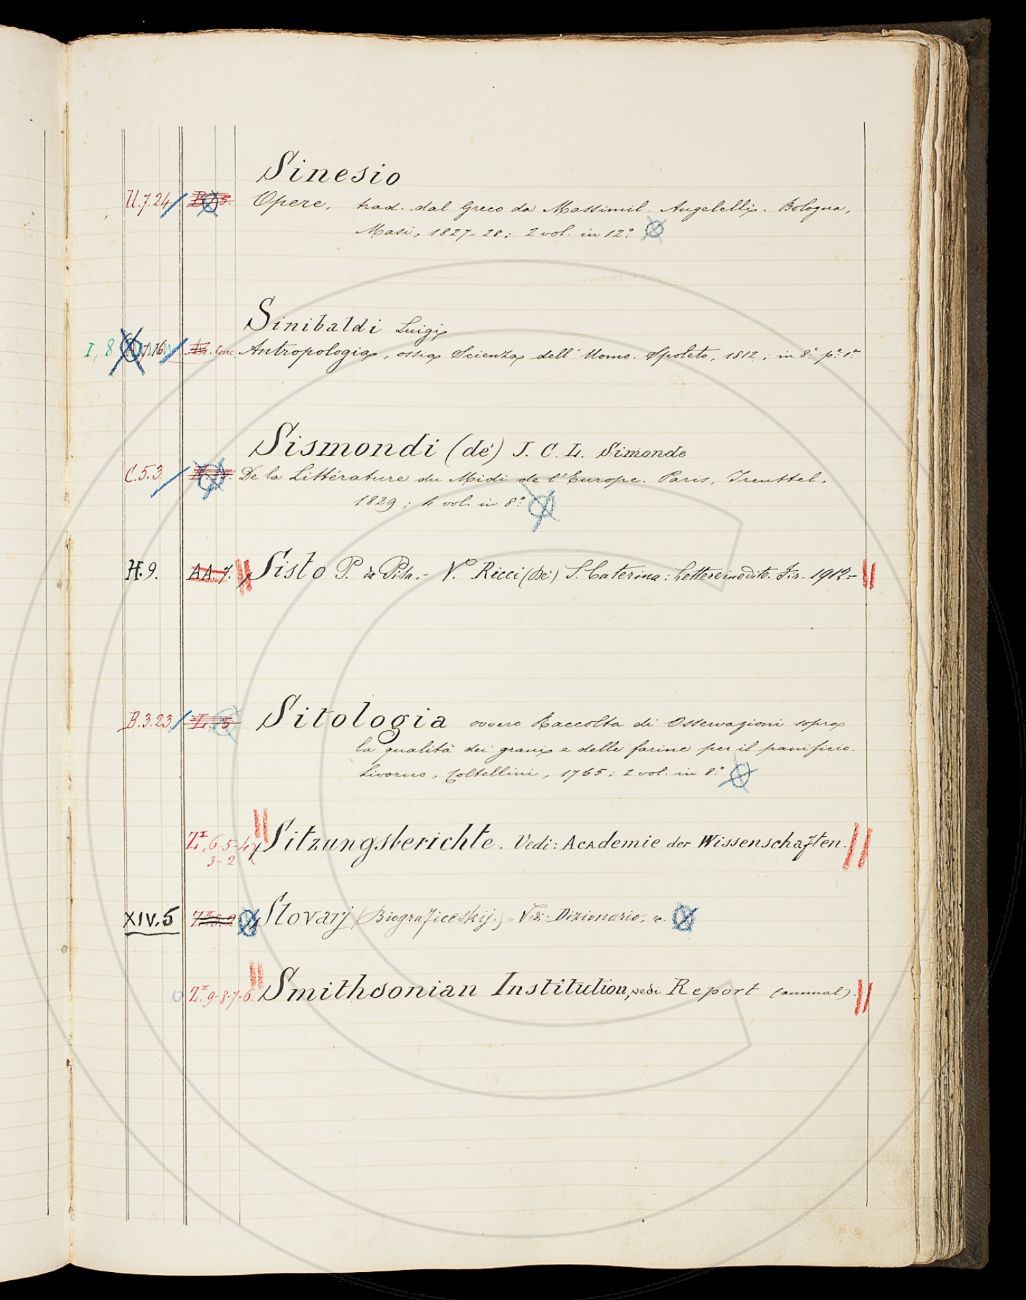 Sinesio
U.7.24 Opere, trad. dal Greco da Massimil. Angelelli. Bologna,
Masi, 1827-28; 2 vol. in 12.°
Sinibaldi Luigi
I, 8 Antropologia, ossia Scienza dell' Uomo. Spoleto, 1812, in 8.° p.e 1.a
Sismondi (de) J. C. L. Simonde
C.5.3 De la Littérature du Midi de l'Europe. Paris, Treuttel,
1829; 4 vol. in 8.°
H.9. AA.7. Sisto P. da Pisa.- V.° Ricci (De') S. Caterina: Lettere inedite. Fir. 1912-
B.3.23 L. 5 Sitologia ovvero Raccolta di Osservazioni sopra
la qualità dei grani e delle farine per il panificio.
Livorno, Coltellini, 1765; 2 vol. in 8.°
Z.I, 6-5-4
3-2 Sitzungsberichte. Vedi: Academie der Wissenschaften.
XIV.5 Slovarj (Biograficeskij.)- Vedi: Dizionario,
Z.II 9-8-7-6. Smithsonian Institution, vedi Report (annual).